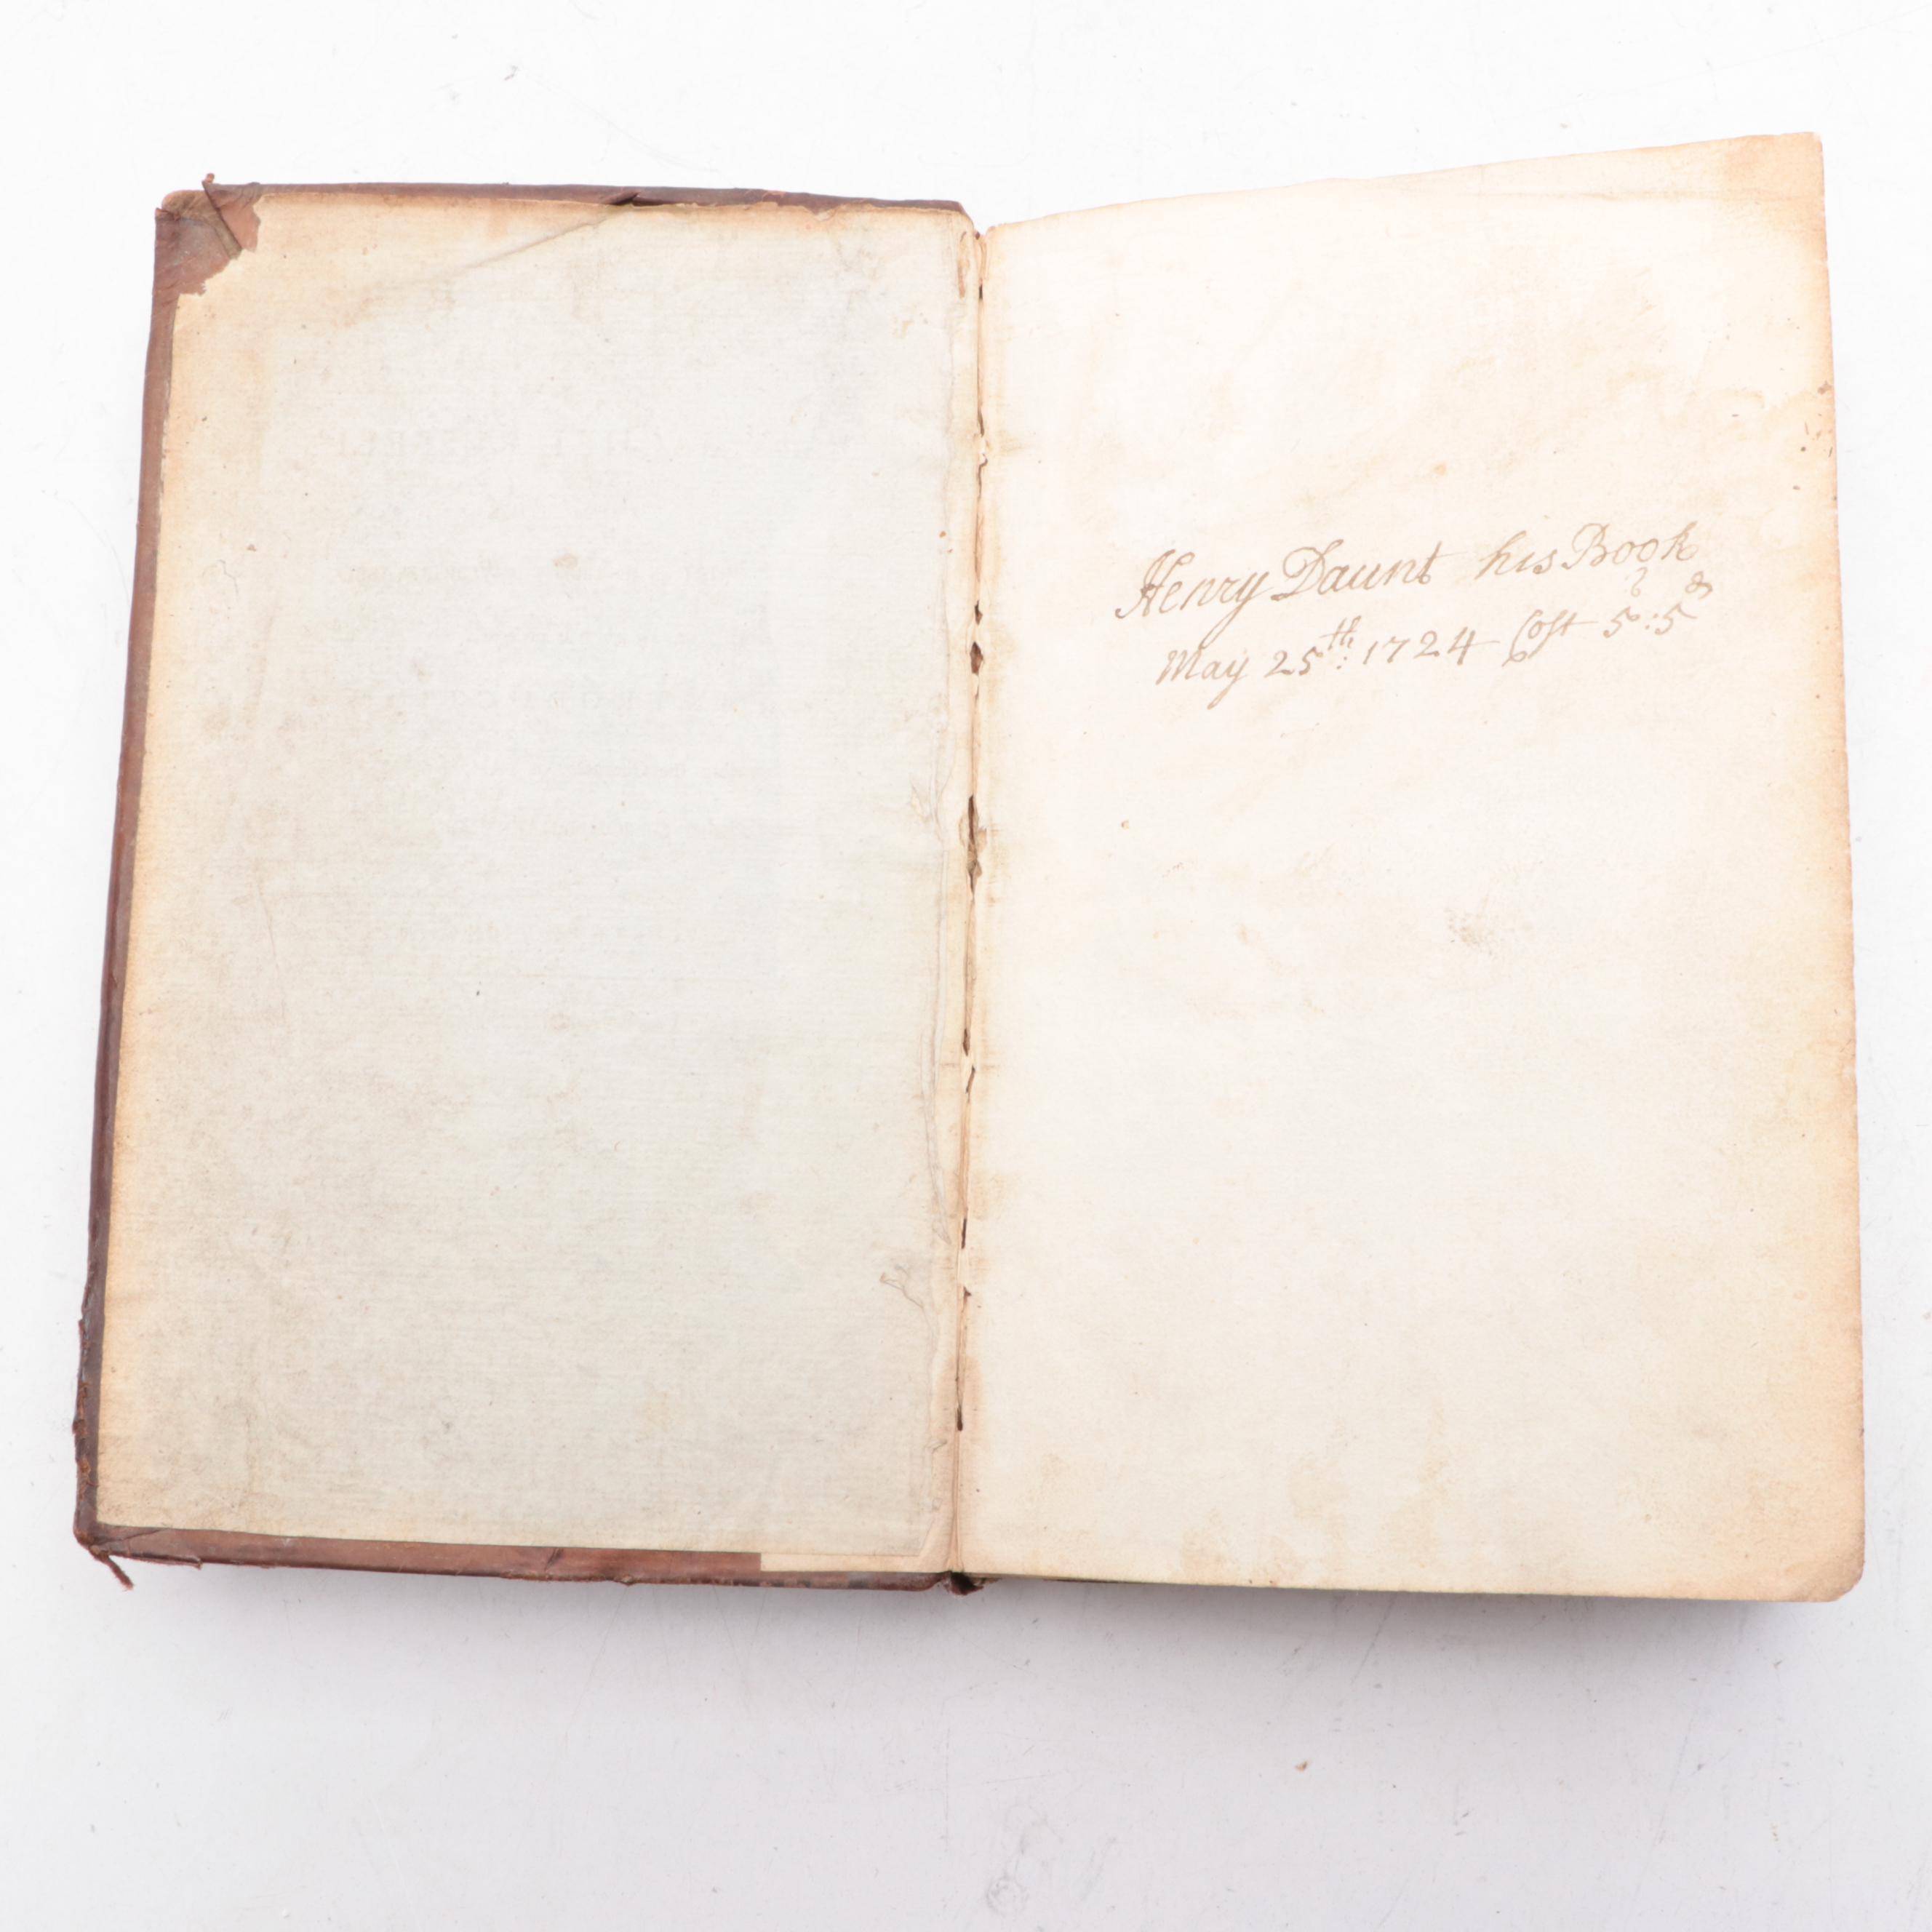 Henry Daunt his Book
May 25th: 1724 Cost 5s:5d